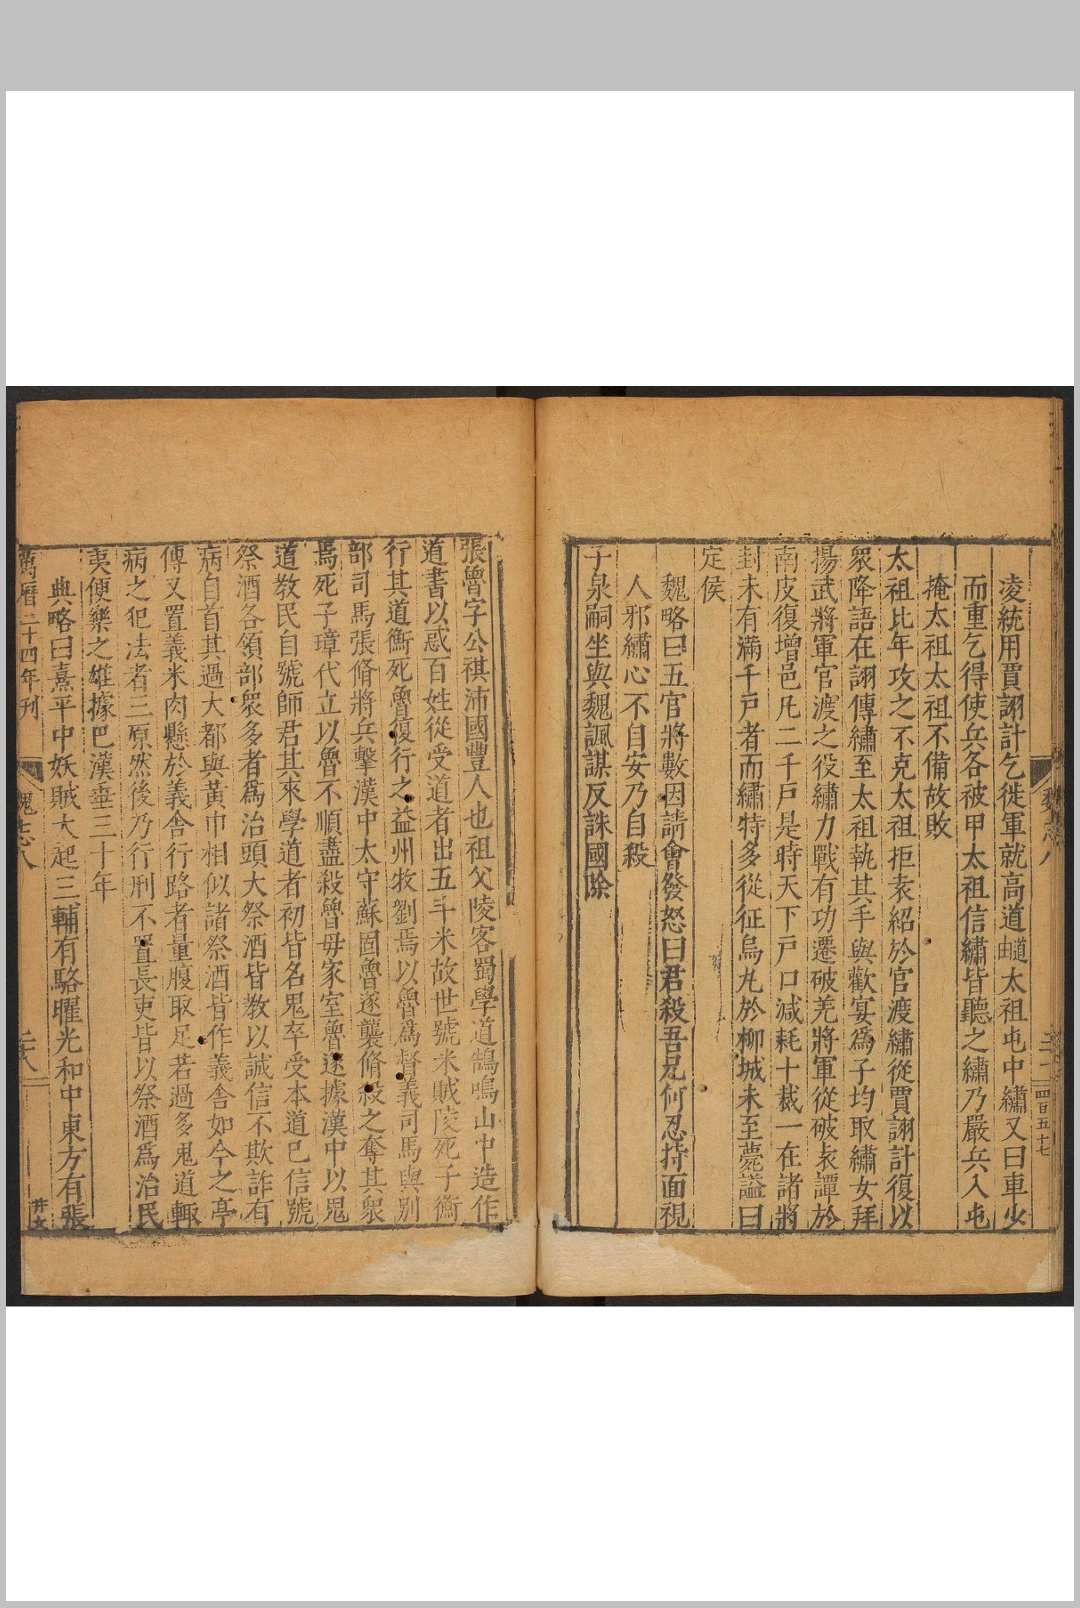 凌統用賈詡計乞徙軍就高道道由太祖屯中繡又曰車少
而重乞得使兵各被甲太祖信繡皆聽之繡乃嚴兵入屯
掩太祖太祖不備故敗
太祖比年攻之不克太祖拒袁紹於官渡繡從賈詡計復以
衆降語在詡傳繡至太祖執其手與歡宴爲子均取繡女拜
揚武將軍官渡之役繡力戰有功遷破羌將軍從破袁譚於
南皮復增邑凡二千戸是時天下戸口減耗十裁一在諸將
封未有滿千戸者而繡特多從征烏丸於柳城未至薨謚曰
定侯
魏略曰五官將數因請會發怒曰君殺吾兄何忍持面視
人邪繡心不自安乃自殺
子泉嗣坐與魏諷謀反誅國除
張魯字公祺沛國豐人也祖父陵客蜀學道鵠鳴山中造作
道書以惑百姓從受道者出五斗米故世號米賊陵死子衡
行其道衡死魯復行之益州牧劉焉以魯爲督義司馬與别
部司馬張脩將兵擊漢中太守蘇固魯遂襲脩殺之奪其衆
焉死子璋代立以魯不順盡殺魯母家室魯遂據漢中以鬼
道教民自號師君其來學道者初皆名鬼卒受本道已信號
祭酒各領部衆多者爲治頭大祭酒皆教以誠信不欺詐有
病自首其過大都與黃巾相似諸祭酒皆作義舍如今之亭
傳又置義米肉懸於義舍行路者量腹取足若過多鬼道輒
病之犯法者三原然後乃行刑不置長吏皆以祭酒爲治民
夷便樂之雄據巴漢垂三十年
典略曰熹平中妖賊大起三輔有駱曜光和中東方有張
萬曆二十四年刊 魏志八